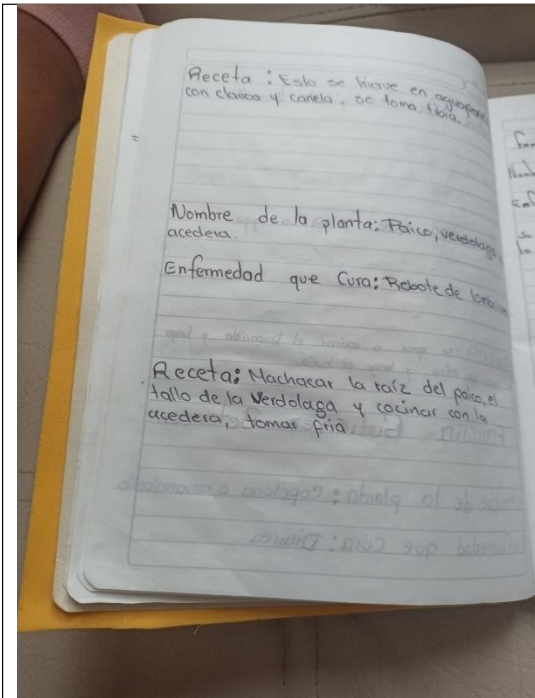 Receta: Esto se hierve en aguapan
con clavos y canela. se toma tibia.
Nombre de la planta: Paico, verdolaga,
acedera.
Enfermedad que Cura: Rebote de
Receta: Machacar la raíz del paico, el
tallo de la Verdolaga y cocinar con la
acedera, tomar fría